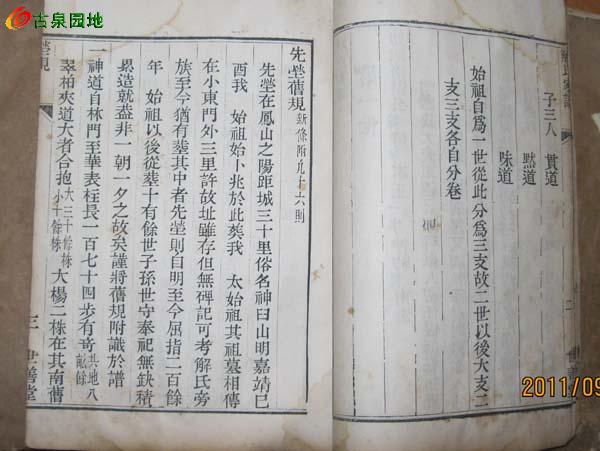 古泉园地
子三人 貫道
默道
味道
始祖自爲一世從此分爲三支故二世以後大支二
支三支各自分卷
二
先塋舊規新條附凡十六則
先塋在鳳山之陽距城三十里俗名神臼山明嘉靖巳
酉我 始祖始卜兆於此葵我 太始祖其祖墓相傳
在小東門外三里許故址雖存但無碑記可考解氏旁
族至今猶有塟其中者先塋則自明至今屈指二百餘
年 始祖以後從塟十有餘世子孫世守奉祀無缺積
累造就葢非一朝一夕之故矣謹將舊規附識於譜
一神道自林門至華表柱長一百七十四步有奇共地八畝餘
翠柏夾道大者合抱大三十餘株小十餘株大楊二株在其南舊
塋規 三 世善堂
2011/09